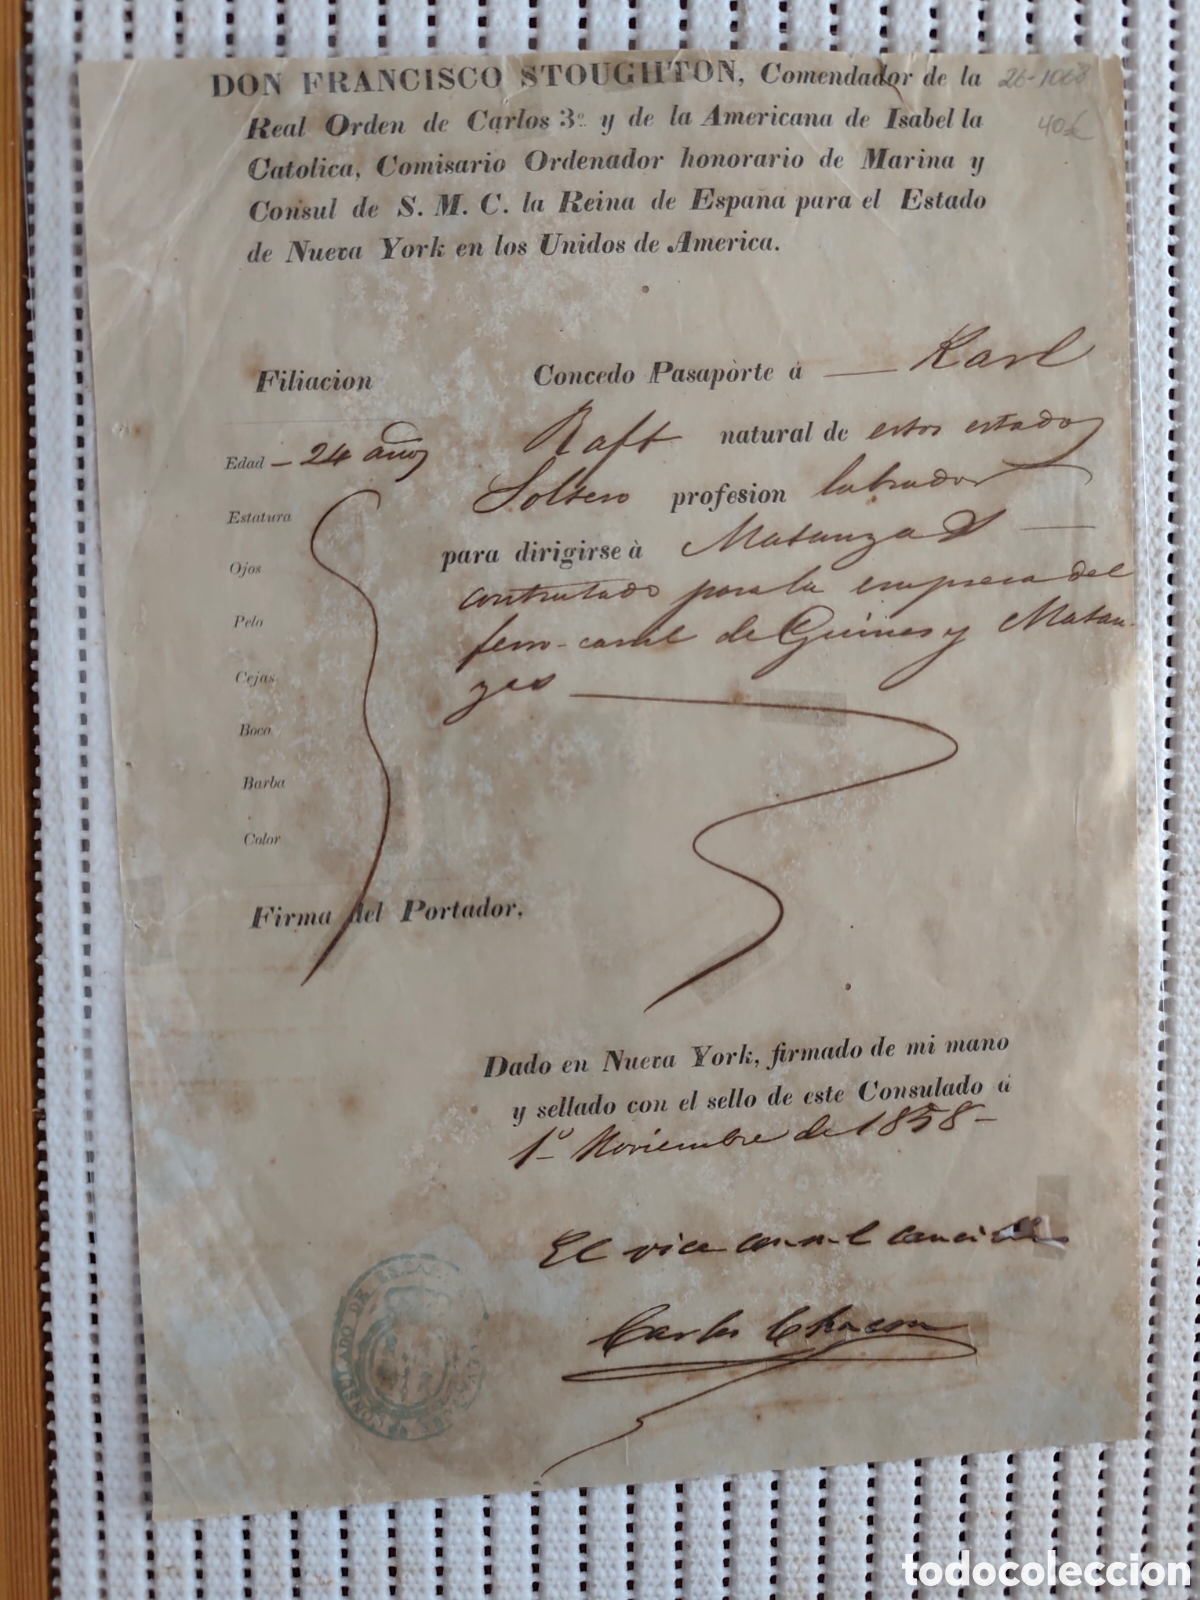 DON FRANCISCO STOUGHTON, Comendador de la
26-1068
Real Orden de Carlos 3º y de la Americana de Isabel la
40£
Catolica, Comisario Ordenador honorario de Marina y
Consul de S. M. C. la Reina de España para el Estado
de Nueva York en los Unidos de America.
Filiacion
Concedo Pasapòrte á — Karl
Raft natural de estos estados
Edad — 24 años
Soltero profesion labrador
Estatura
para dirigirse à Matanzas —
Ojos
contratado para la empresa del
Pelo
ferro-carril de Guines y Matan-
Cejas
zas
Boca
Barba
Color
Firma del Portador,
Dado en Nueva York, firmado de mi mano
y sellado con el sello de este Consulado á
1º Noviembre de 1858 —
El vice consul canciller
Carlos Chacon
CONSULADO DE
todocoleccion